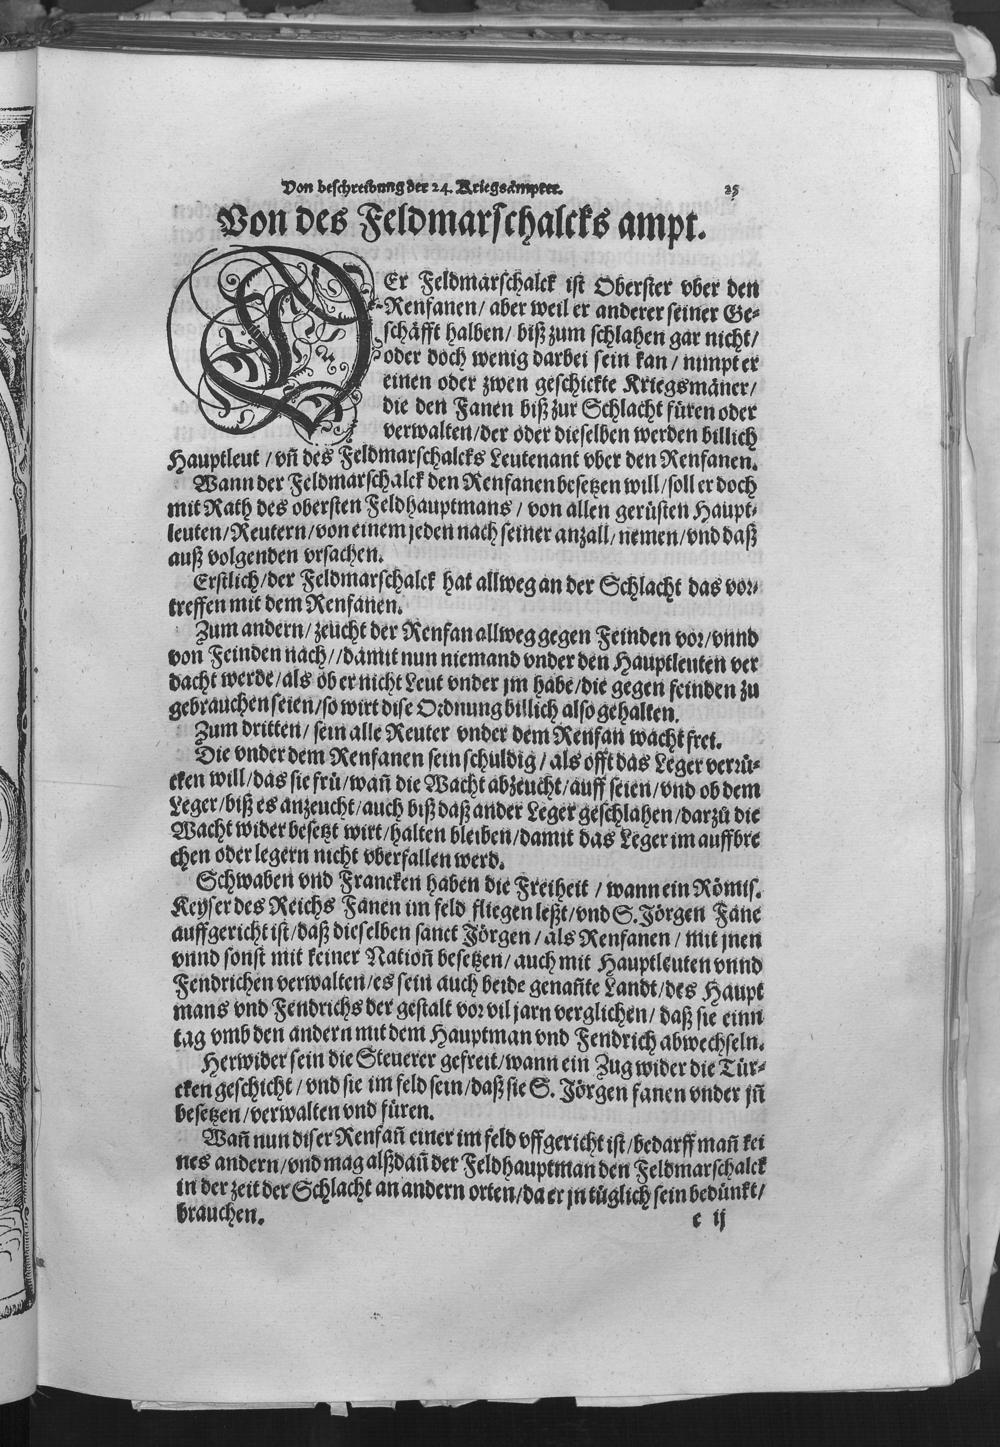 Von beschreibung der 24. Kriegsämpter. 25
Von des Feldmarschalcks ampt.
DEr Feldmarschalck ist Oberster vber den
Renfanen / aber weil er anderer seiner Ge-
schäfft halben / biß zum schlahen gar nicht /
oder doch wenig darbei sein kan / nimpt er
einen oder zwen geschickte Kriegsmäner /
die den Fanen biß zur Schlacht füren oder
verwalten / der oder dieselben werden billich
Hauptleut / vñ des Feldmarschalcks Leutenant vber den Renfanen.
Wann der Feldmarschalck den Renfanen besetzen will / soll er doch
mit Rath des obersten Feldhauptmans / von allen gerüsten Haupt-
leuten / Reutern / von einem jeden nach seiner anzall / nemen / vnd daß
auß volgenden vrsachen.
Erstlich / der Feldmarschalck hat allweg an der Schlacht das vor-
treffen mit dem Renfanen.
Zum andern / zeucht der Renfan allweg gegen Feinden vor / vnnd
von Feinden nach / / damit nun niemand vnder den Hauptleuten ver
dacht werde / als ob er nicht Leut vnder jm habe / die gegen feinden zu
gebrauchen seien / so wirt dise Ordnung billich also gehalten.
Zum dritten / sein alle Reuter vnder dem Renfan wacht frei.
Die vnder dem Renfanen sein schuldig / als offt das Leger verrü-
cken will / das sie frü / wañ die Wacht abzeucht / auff seien / vnd ob dem
Leger / biß es anzeucht / auch biß daß ander Leger geschlahen / darzů die
Wacht wider besetzt wirt / halten bleiben / damit das Leger im auffbre
chen oder legern nicht vberfallen werd.
Schwaben vnd Francken haben die Freiheit / wann ein Römis.
Keyser des Reichs Fanen im feld fliegen leßt / vnd S. Jörgen Fane
auffgericht ist / daß dieselben sanct Jörgen / als Renfanen / mit jnen
vnnd sonst mit keiner Nationñ besetzen / auch mit Hauptleuten vnnd
Fendrichen verwalten / es sein auch beide genañte Landt / des Haupt
mans vnd Fendrichs der gestalt vor vil jarn verglichen / daß sie einn
tag vmb den andern mit dem Hauptman vnd Fendrich abwechseln.
Herwider sein die Steuerer gefreit / wann ein Zug wider die Tür-
cken geschicht / vnd sie im feld sein / daß sie S. Jörgen fanen vnder jñ
besetzen / verwalten vnd füren.
Wañ nun diser Renfañ einer im feld vffgericht ist / bedarff mañ kei
nes andern / vnd mag alßdañ der Feldhauptman den Feldmarschalck
in der zeit der Schlacht an andern orten / da er jn tüglich sein bedünkt /
brauchen.
e ij